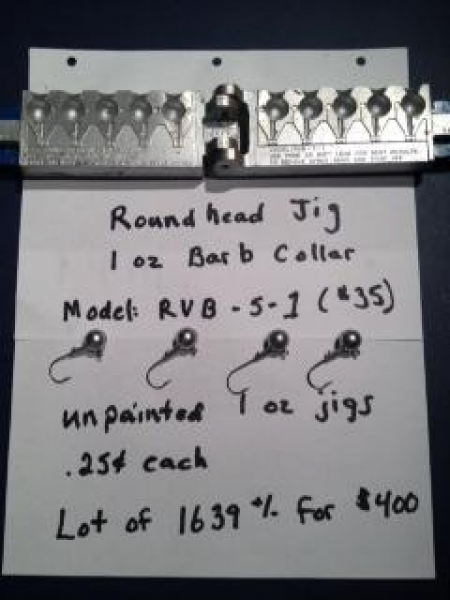 Round head Jig
1 oz Barb Collar
Model: RVB-5-1 ($35)
unpainted 1 oz jigs
.25¢ each
Lot of 1639 +/- for $400